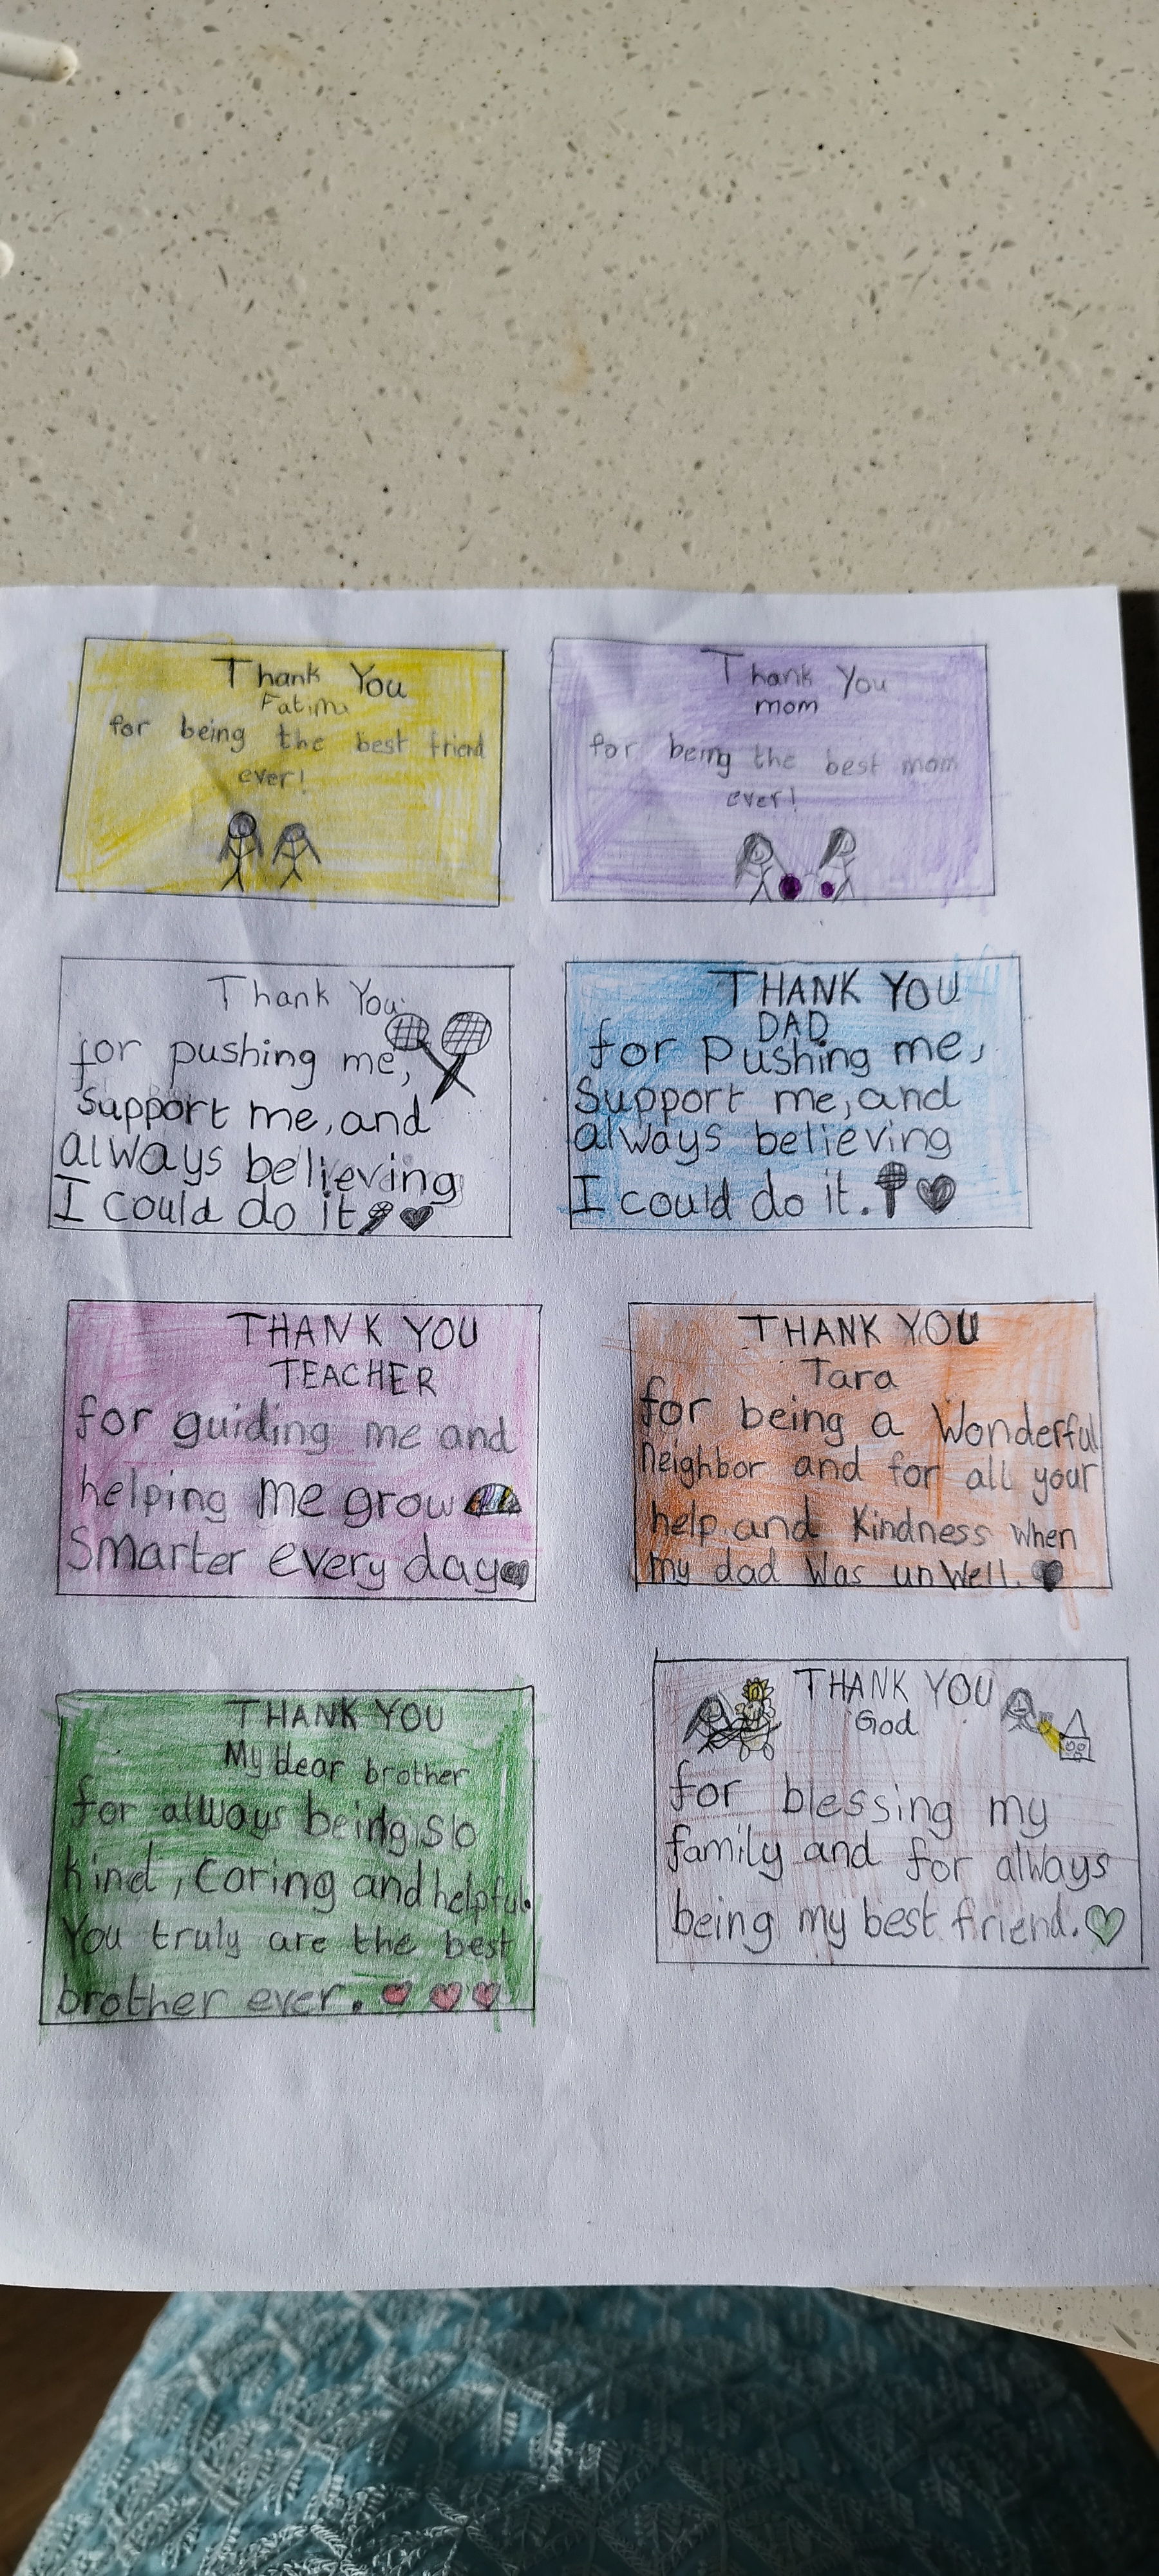 Thank You
Fatima
for being the best friend
ever!
Thank You
mom
for being the best mom
ever!
Thank You
for pushing me,
Support me, and
always believing
I could do it
THANK YOU
DAD
for Pushing me,
Support me, and
always believing
I could do it.
THANK YOU
TEACHER
for guiding me and
helping me grow
Smarter every day
THANK YOU
Tara
for being a Wonderful
neighbor and for all your
help and Kindness when
my dad Was unWell.
THANK YOU
My dear brother
for always being so
kind, Caring and helpful.
You truly are the best
brother ever.
THANK YOU
God
for blessing my
family and for always
being my best friend.